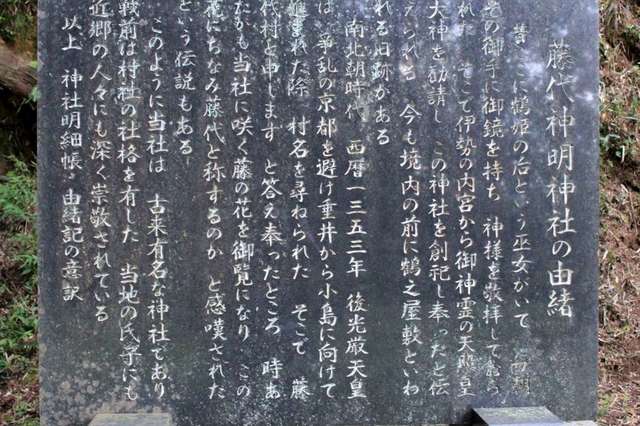 藤代神明神社の由緒
昔 ここに鶴姫の后という巫女がいて 四期
の御手に御鏡を持ち 神様を敬拝して
れた そこで伊勢の内宮から御神霊の天照皇
大神を勧請し この神社を創祀し奉ったと伝
えられる 今も境内の前に鶴之屋敷といわ
れる旧跡がある
南北朝時代 西暦一三五三年 後光厳天皇
は 争乱の京都を避け垂井から小島に向けて
された際 村名を尋ねられた そこで 藤
代村と申します と答え奉ったところ 時あ
たかも当社に咲く藤の花を御覧になり この
花にちなみ藤代と称するのか と感嘆された
という伝説もある
このように当社は 古来有名な神社であり
戦前は村社の社格を有した 当地の氏子にも
近郷の人々にも深く崇敬されている
以上 神社明細帳 由緒記の意訳